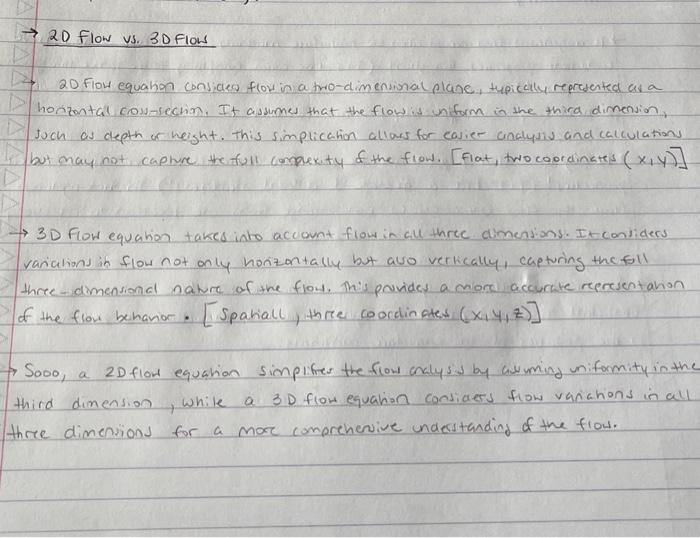 → 2D Flow vs. 3D Flows
→ 2D Flow equation considers flow in a two-dimensional plane, typically represented as a
horizontal cross-section. It assumes that the flow is uniform in the third dimension,
such as depth or height. This simplication allows for easier analysis and calculations
but may not capture the full complexity of the flow. [Flat, two coordinates (x,y)]
→ 3D Flow equation takes into account flow in all three dimensions. It considers
variations in flow not only horizontally but also vertically, capturing the full
three-dimensional nature of the flow. This provides a more accurate representation
of the flow behavior. [Spatiall, three coordinates (x,y,z)]
→ Sooo, a 2D flow equation simplifies the flow analysis by assuming uniformity in the
third dimension, while a 3D flow equation considers flow variations in all
three dimensions for a more comprehensive understanding of the flow.